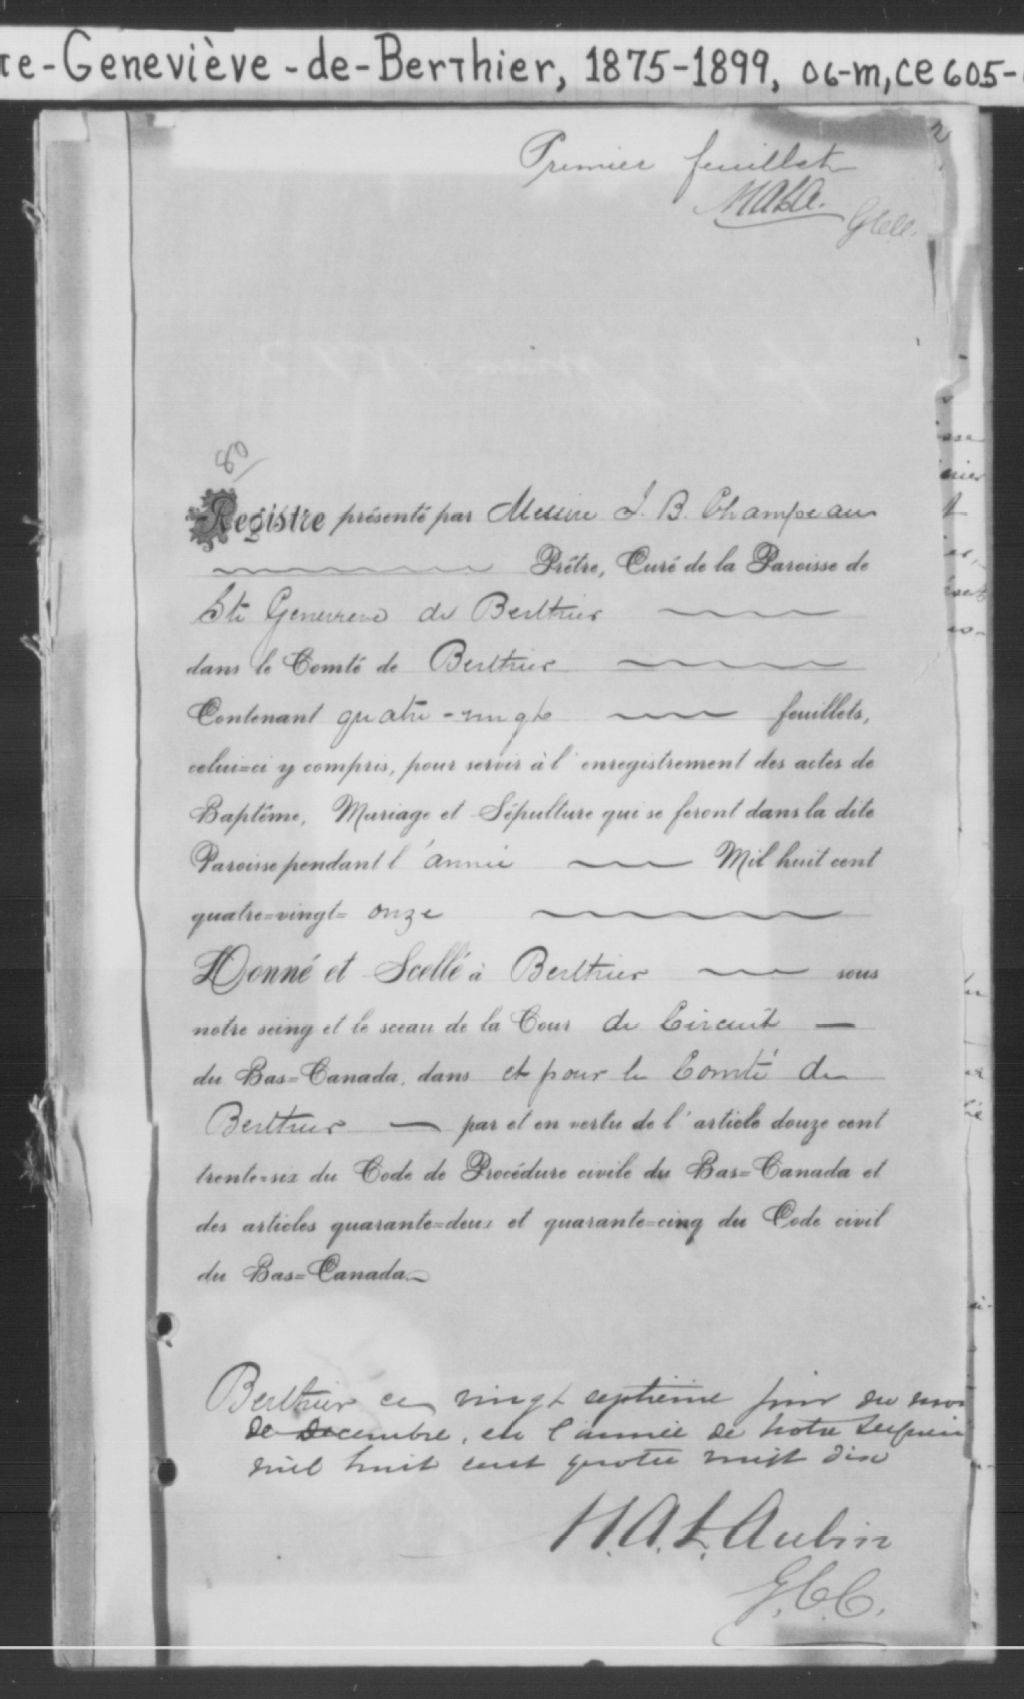 te-Geneviève-de-Berthier, 1875-1899, 06-m, ce605-
2
Premier feuillet
HALA.
GCC.
80
Registre présenté par Messire J. B. Champeau
Prêtre, Curé de la Paroisse de
Ste Genevieve de Berthier
dans le Comté de Berthier
Contenant quatre-vingts feuillets,
celui=ci y compris, pour servir à l'enregistrement des actes de
Baptême, Mariage et Sépulture qui se feront dans la dite
Paroisse pendant l'année Mil huit cent
quatre=vingt= onze
Donné et Scellé à Berthier sous
notre seing et le sceau de la Cour de Circuit
du Bas=Canada, dans et pour le Comté de
Berthier par et en vertu de l'article douze cent
trente=six du Code de Procédure civile du Bas=Canada et
des articles quarante=deux et quarante=cinq du Code civil
du Bas=Canada.
Berthier ce vingt septième jour du mois
de decembre, en l'année de notre Seigneur
mil huit cent quatre vingt dix
H.A.L. Aubin
G.C.C.